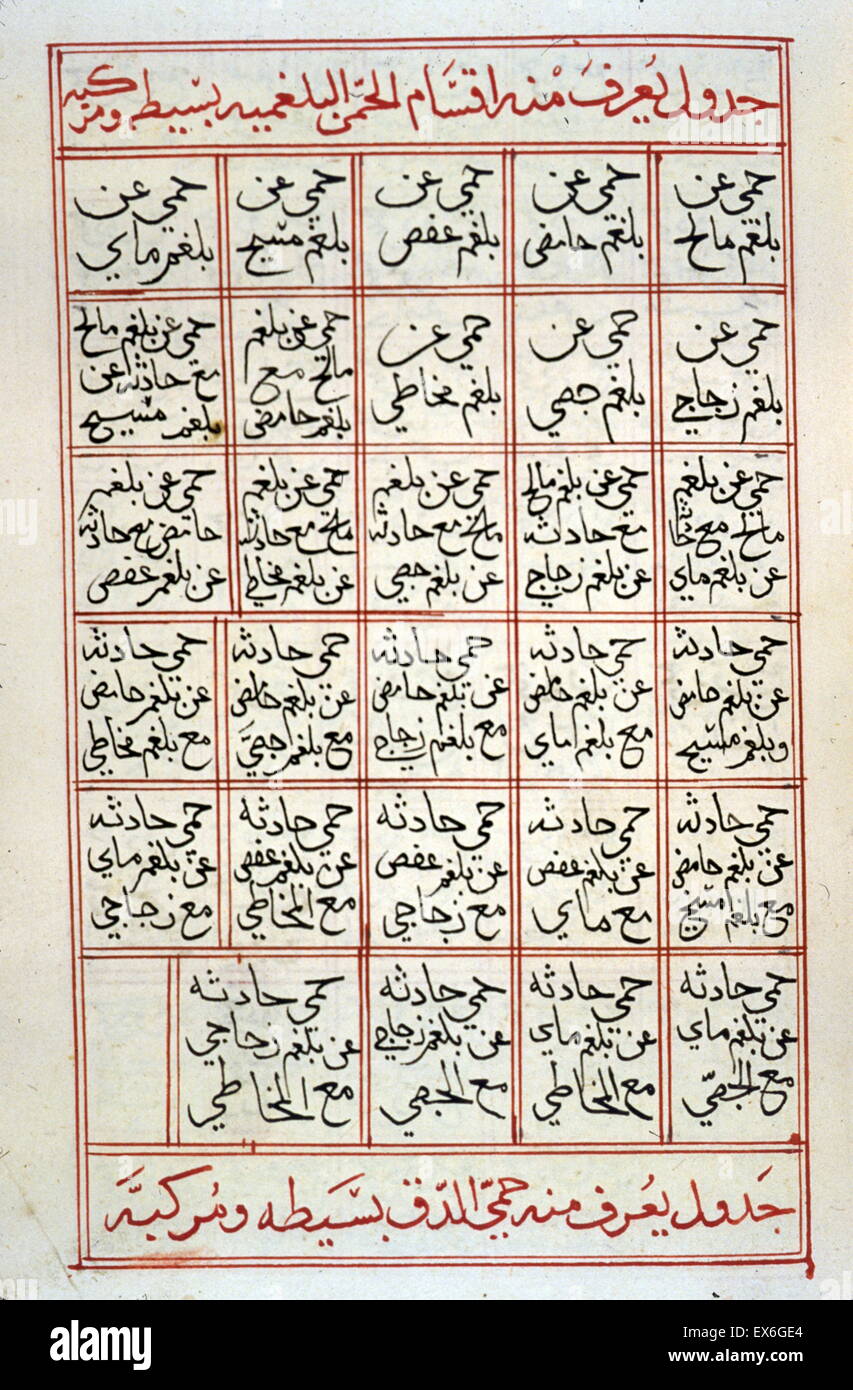 جدول يُعرفَ مْنه اقسَّام الحمّى البلغميه بسّيطه ومركبه
حمي عن
بلغم مالح
حمي عن
بلغم حامض
حمي عن
بلغم عفص
حمي عن
بلغم مسّيح
حمي عن
بلغم ماي
حمي عن
بلغم زجاجي
حمي عن
بلغم جصي
حمي عن
بلغم مخاطي
حمي عن بلغم
مالح مع
بلغم حامض
حمي عن بلغم مالح
مع حادثه عن
بلغم مسّيح
حمي عن بلغم
مالح مع
عن بلغم ماي
حمي عن بلغم مالح
مع حادثه
عن بلغم زجاجي
حمي عن بلغم
مالح مع حادثه
عن بلغم جصي
حمي عن بلغم
مالح مع حادثه
عن بلغم مخاطي
حمي عن بلغم
حامض مع حادثه
عن بلغم عفص
حمي حادثه
عن بلغم حامض
وبلغم مسّيح
حمي حادثه
عن بلغم حامض
مع بلغم ماي
حمي حادثه
عن بلغم حامض
مع بلغم زجاجي
حمي حادثه
عن بلغم حامض
مع بلغم جصي
حمي حادثه
عن بلغم حامض
مع بلغم مخاطي
حمي حادثه
عن بلغم حامض
مع بلغم مسّيح
حمي حادثه
عن بلغم عفص
مع ماي
حمي حادثه
عن بلغم عفص
مع زجاجي
حمي حادثه
عن بلغم عفص
مع المخاطي
حمي حادثه
عن بلغم ماي
مع زجاجي
حمي حادثه
عن بلغم ماي
مع الجصّي
حمي حادثه
عن بلغم ماي
مع المخاطي
حمي حادثه
عن بلغم زجاجي
مع الجصي
حمي حادثه
عن بلغم زجاجي
مع المخاطي
جَدول يعُرف منه حميّ الدّق بسَّيطه ومُركبهَّ
alamy
Image ID: EX6GE4
www.alamy.com